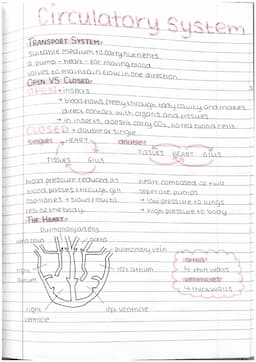 Circulatory System
TRANSPORT SYSTEM:
suitable medium to carry nutrients
a pump - heart - for moving blood
valves to maintain flow in one direction
OPEN VS CLOSED:
OPEN → insects
→ blood flows freely through body cavity and makes
direct contact with organs and tissues
→ in insects, doesn't carry CO2, no red blood cells
CLOSED → double or single
single: HEART
TISSUES GILLS
double:
TISSUES HEART GILLS
blood pressure reduced as
blood passes through gill
capillaries → slows flow to
rest of the body.
heart composed of two
seperate pumps
→ low pressure to lungs
→ high pressure to body
THE HEART
Pulmonary artery
vena cava
aorta
pulmonary vein
right
atrium
left atrium
right
ventricle
left ventricle
atria:
↳ thin walls
ventricles:
↳ thick walls